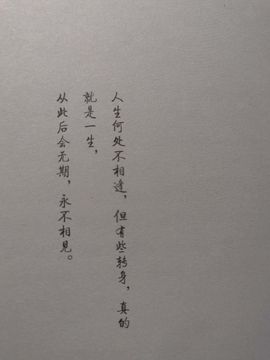 人生何处不相逢，但有些转身，真的
就是一生，
从此后会无期，永不相见。